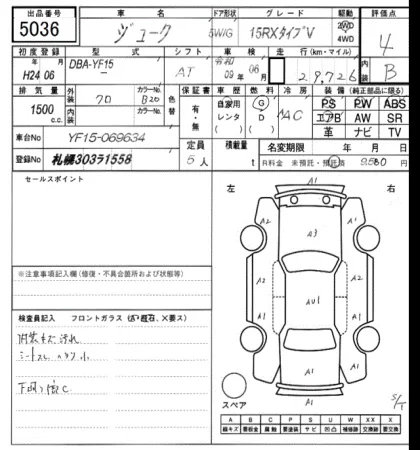 出品番号 車名 ドア形状 グレード 駆動 評価点
5036 ジューク 5W/G 15RXタイプV 2WD 4WD 4
初度登録 型式 シフト 車検 走行(km・マイル) 内装
H24 06 DBA-YF15 AT 令和 09 06 29,726 B
年 月 年 月
排気量 外装 カラーNo. 色替 保証書 車歴 燃料 冷房 装備(純正部品に限る)
1500 c.c. 70 B20 有・無 自家用 G AAC PS PW ABS
内装 カラーNo. レンタ D エアB AW SR
車台No YF15-069634 革 ナビ TV
定員 積載量 名変期限 年 月 日
登録No 札幌303ラ1558 5人 t R料金 未預託・預託済 9580 円
セールスポイント
左 右
A1
A1 A2
A3
A2 A2
AU1
A1 A1
A1
A1
※注意事項記入欄(修復・不具合箇所および改造等)
検査員記入 フロントガラス
内装キズ汚れ
シートスレ ヘタリ小
下廻り
スペア
S/T
A B C P S U W X XX
線キズ 要板金 腐触 要塗装 サビ 凹凸 補修跡 要交換 交換済